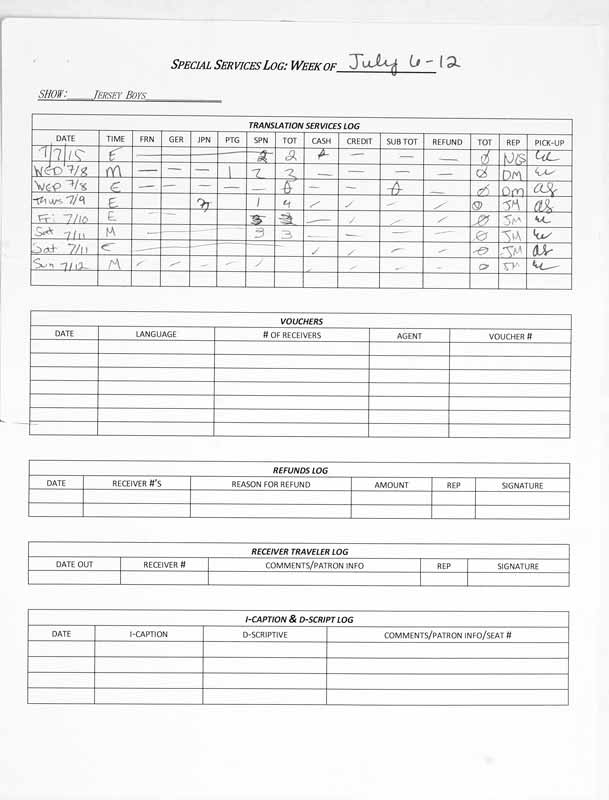 SPECIAL SERVICES LOG: WEEK OF July 6-12
SHOW: JERSEY BOYS
TRANSLATION SERVICES LOG
DATE TIME FRN GER JPN PTG SPN TOT CASH CREDIT SUB TOT REFUND TOT REP PICK-UP
7/7/15 E 2 2 — — — Ø NG
WED 7/8 M — — — 1 2 3 — — — — Ø DM
WED 7/8 E — — — — — 0 — — 0 — Ø DM as
Thurs 7/9 E 1 4 Ø JM as
Fri 7/10 E 3 3 Ø JM
Sat 7/11 M 3 3 Ø JM
Sat 7/11 E Ø JM as
Sun 7/12 M Ø JM
VOUCHERS
DATE LANGUAGE # OF RECEIVERS AGENT VOUCHER #
REFUNDS LOG
DATE RECEIVER #'S REASON FOR REFUND AMOUNT REP SIGNATURE
RECEIVER TRAVELER LOG
DATE OUT RECEIVER # COMMENTS/PATRON INFO REP SIGNATURE
I-CAPTION & D-SCRIPT LOG
DATE I-CAPTION D-SCRIPTIVE COMMENTS/PATRON INFO/SEAT #